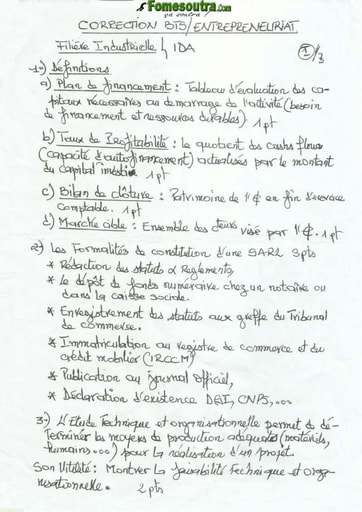 Fomesoutra.com
ça soutra !
CORRECTION BTS/ENTREPRENEURIAT
Filière Industrielle, IDA
1/3
1°) Définitions
a) Plan de financement : Tableau d'évaluation des ca-
pitaux nécessaires au demarrage de l'activité (besoin
de financement et ressources durables) 1pt
b) Taux de Profitabilité : le quotient des cashs flows
(capacité d'autofinancement) actualisés par le montant
du capital investi 1pt
c) Bilan de clôture : Patrimoine de l'E en fin d'exercice
comptable. 1pt
d) Marché cible : Ensemble des visé par l'E. 1pt
2) Les Formalités de constitution d'une SARL 3pts
* Rédaction des statuts & Reglements
* Le dépôt de fonds numeraire chez un notaire ou
dans la caisse sociale.
* Enregistrement des statuts aux greffe du Tribunal
de commerce.
* Immatriculation au registre de commerce et du
crédit mobilier (1RCCM)
* Publication au journal officiel,
* Déclaration d'existence DGI, CNPS,...
3-) L'Etude Technique et organisationnelle permet de dé-
Terminer les moyens de production adéquats (matériels,
humains...) pour la réalisation d'un projet.
Son Utilité : Montrer la faisabilité technique et orga-
nisationnelle. 2pts